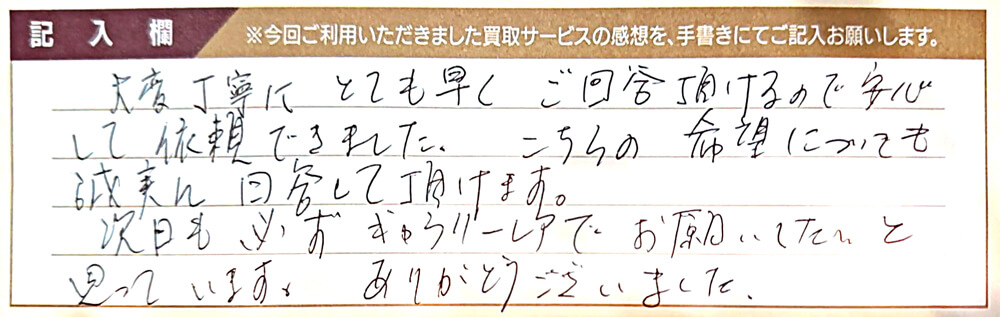 記入欄
※今回ご利用いただきました買取サービスの感想を、手書きにてご記入お願いします。
大変丁寧に とても早く ご回答頂けるので安心
して依頼できました。 こちらの 希望についても
誠実に 回答して頂けます。
次回も 必ず ぎゃらりーレアで お願いしたいと
思って います。 ありがとうございました。